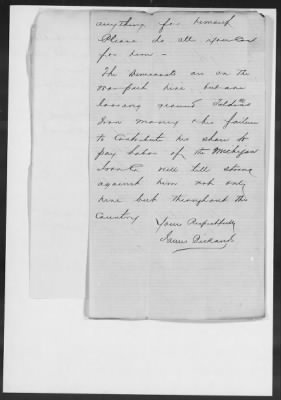 anything for himself
Please do all you can
for him —
The Democrats are on the
war path here but are
loosing ground Tildens
Iron money & his failure
to Contribute his share to
pay labor of the Michigan
Iron Co will tell strong
against him not only
here but throughout the
Country
Yours Respectfully
James Pickands